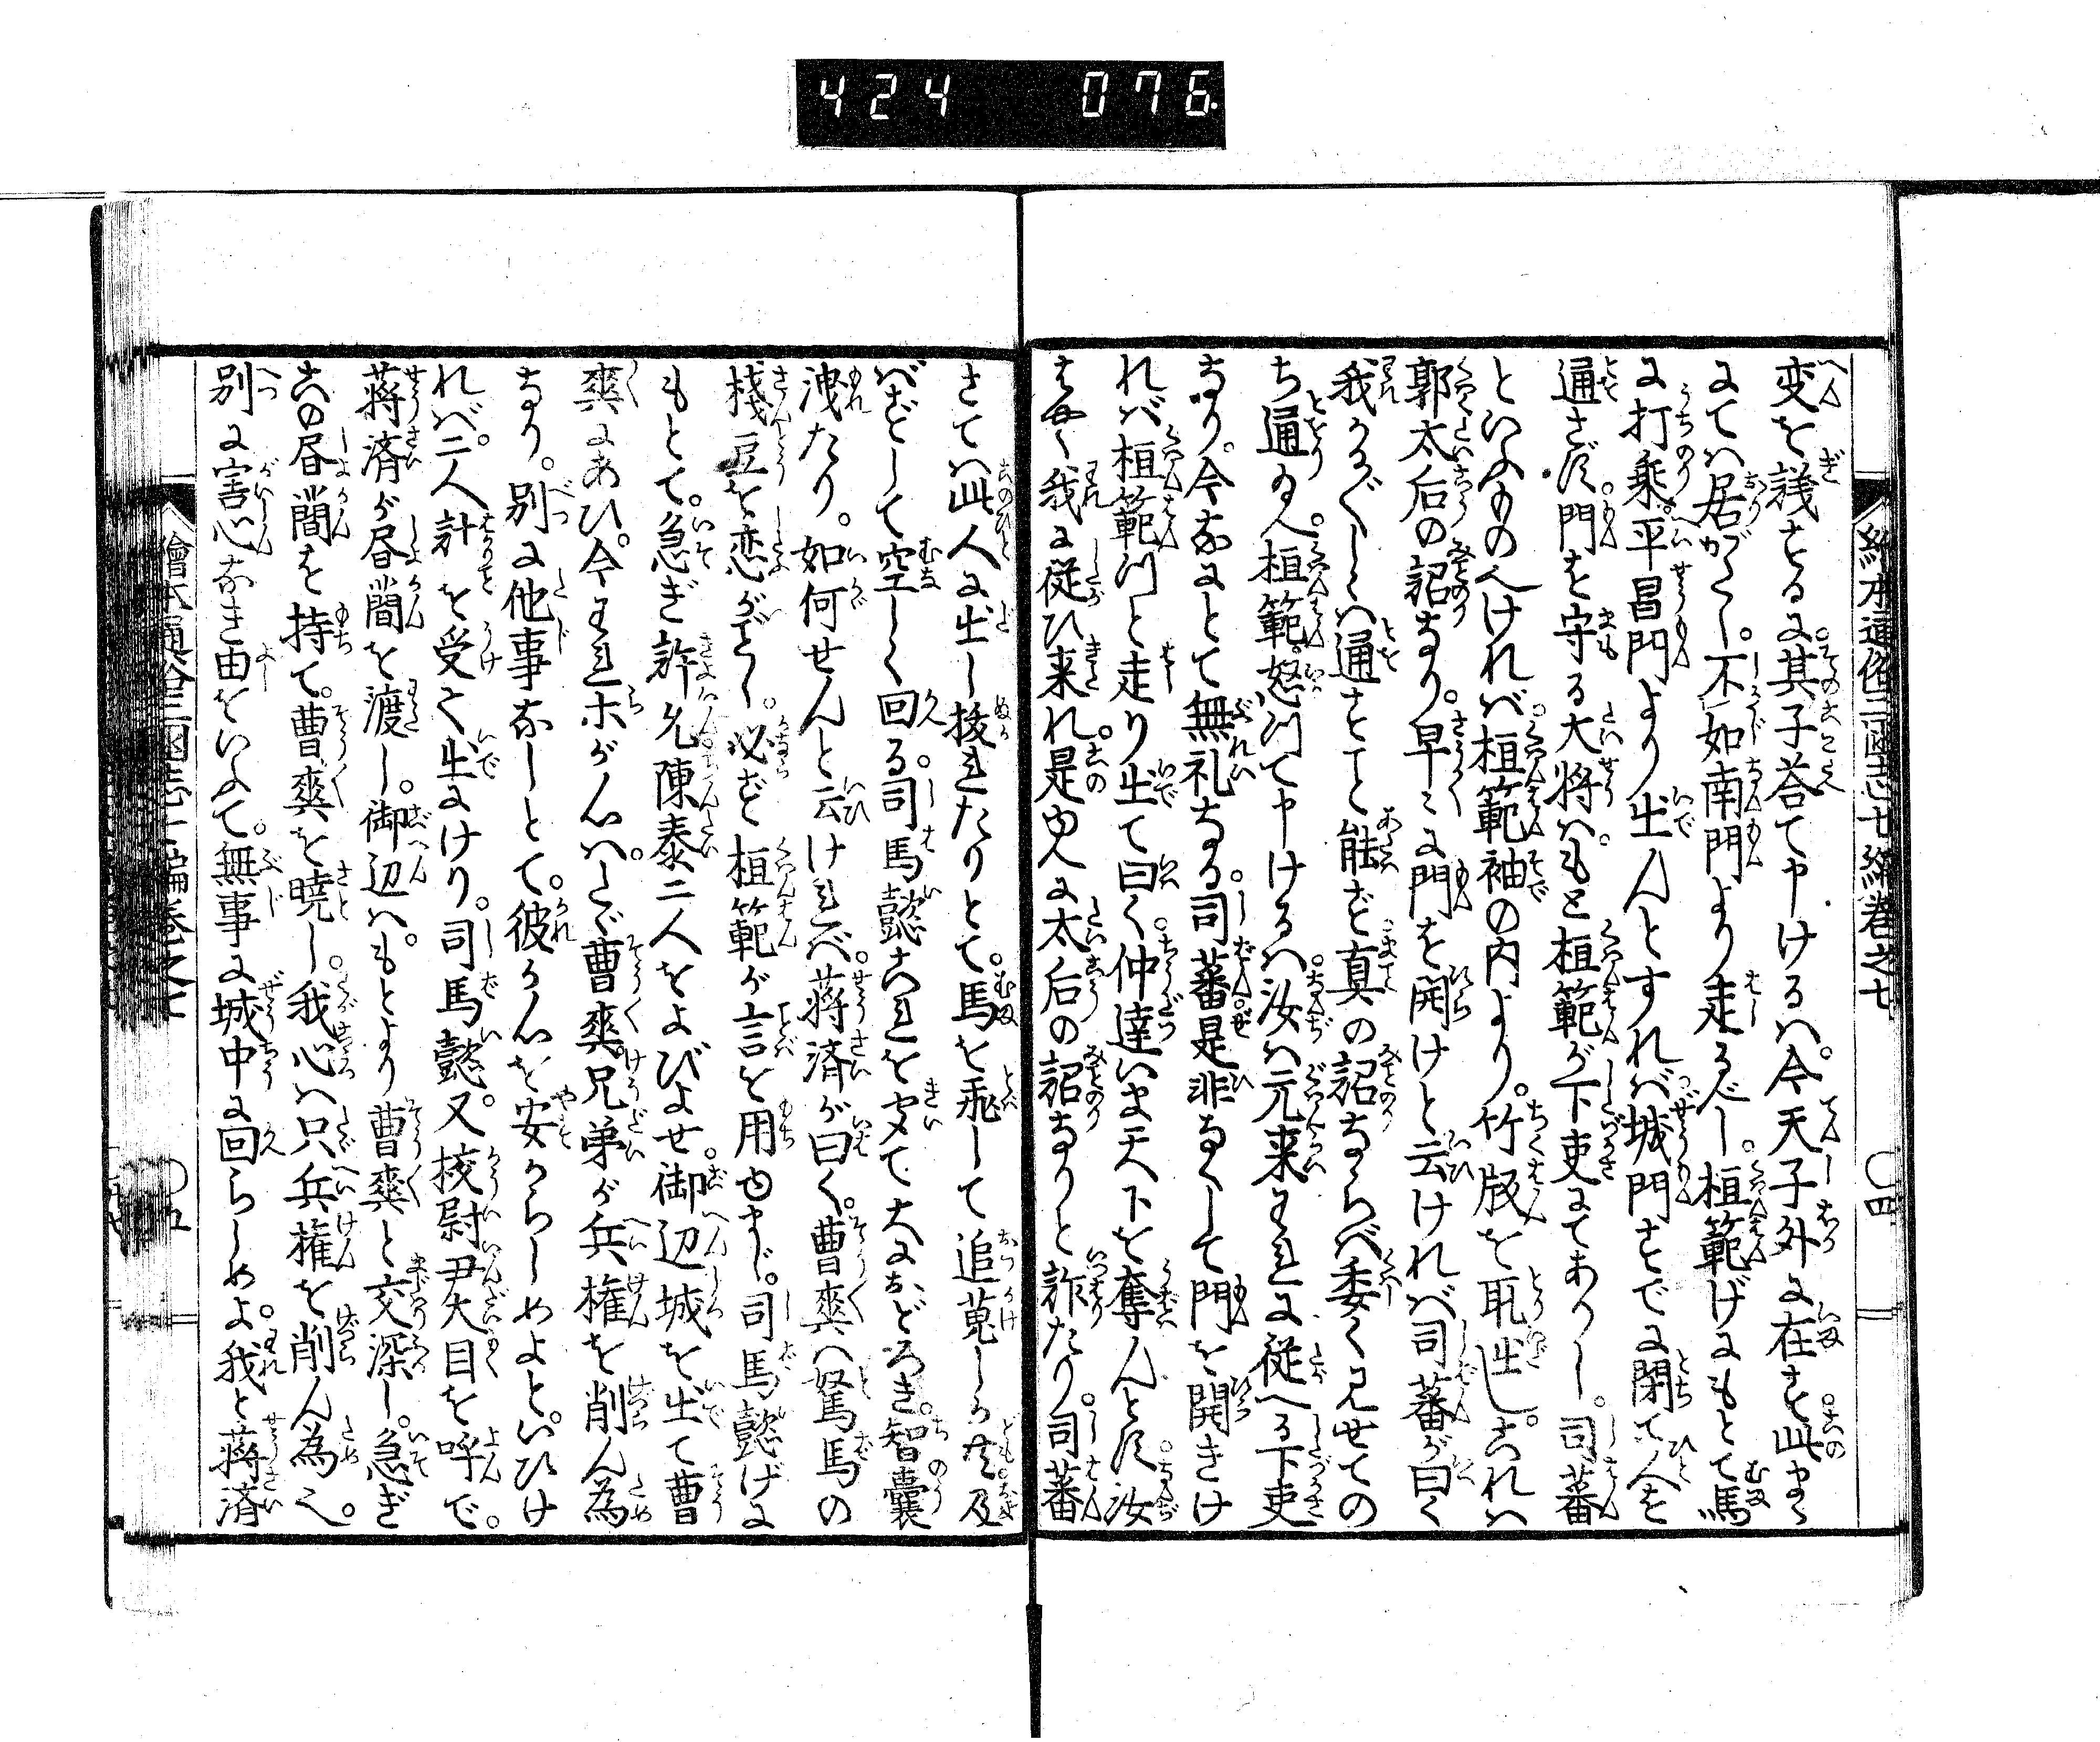 424 076
絵本通俗三国志七編巻之七 〇四
変を議するに其子答て申けるハ。今天子外に在す此まゝ
にてハ居がたし。不如南門より走るべし。桓範げにもとて馬
に打乗平昌門より出んとすれバ城門すでに閉て人を
通さず。門を守る大将ハ。もと桓範が下吏にてありし。司蕃
といふものなりけれバ。桓範袖の内より。竹版を取出し。これハ
郭太后の詔なり。早々に門を開けと云けれバ司蕃が曰く
我かるがるしくハ通すこと能ず真の詔ならバ委く見せての
ち通さん。桓範怒つて申けるハ汝ハ元来われに従へる下吏
なり。今なにとて無礼なる。司蕃是非なくして門を開きけ
れバ桓範門と走り出て曰く仲達いま天下を奪んとす。汝
はやく我に従ひ来れ。是由人に太后の詔なりと詐たり。司蕃
さてハ此人に出し抜れたりとて。馬を飛して追蒐しか共及
ばずして空しく回る。司馬懿これを聞て大におどろき。智嚢
洩たり。如何せんと云けれバ。蒋済が曰く。曹爽ハ駑馬の
棧豆を恋がごとし。必ず桓範が言を用ゆまじ。司馬懿げに
もとて。急ぎ許允陳泰二人をよびよせ。御辺城を出て曹
爽にあひ。今われホがんハ。たゞ曹爽兄弟が兵権を削ん為
なり。別に他事なしとて。彼が心を安からしめよと。いひけ
れバ。二人計を受て出にけり。司馬懿。又校尉尹大目を呼で。
蒋済が昼簡を渡し。御辺ハ。もとより曹爽と交深し。急ぎ
この昼簡を持て。曹爽を暁し。我心ハ只兵権を削ん為也。
別に害心なき由をいふて。無事に城中に回らしめよ。我と蒋済
絵本通俗三国志七編巻之七 〇五